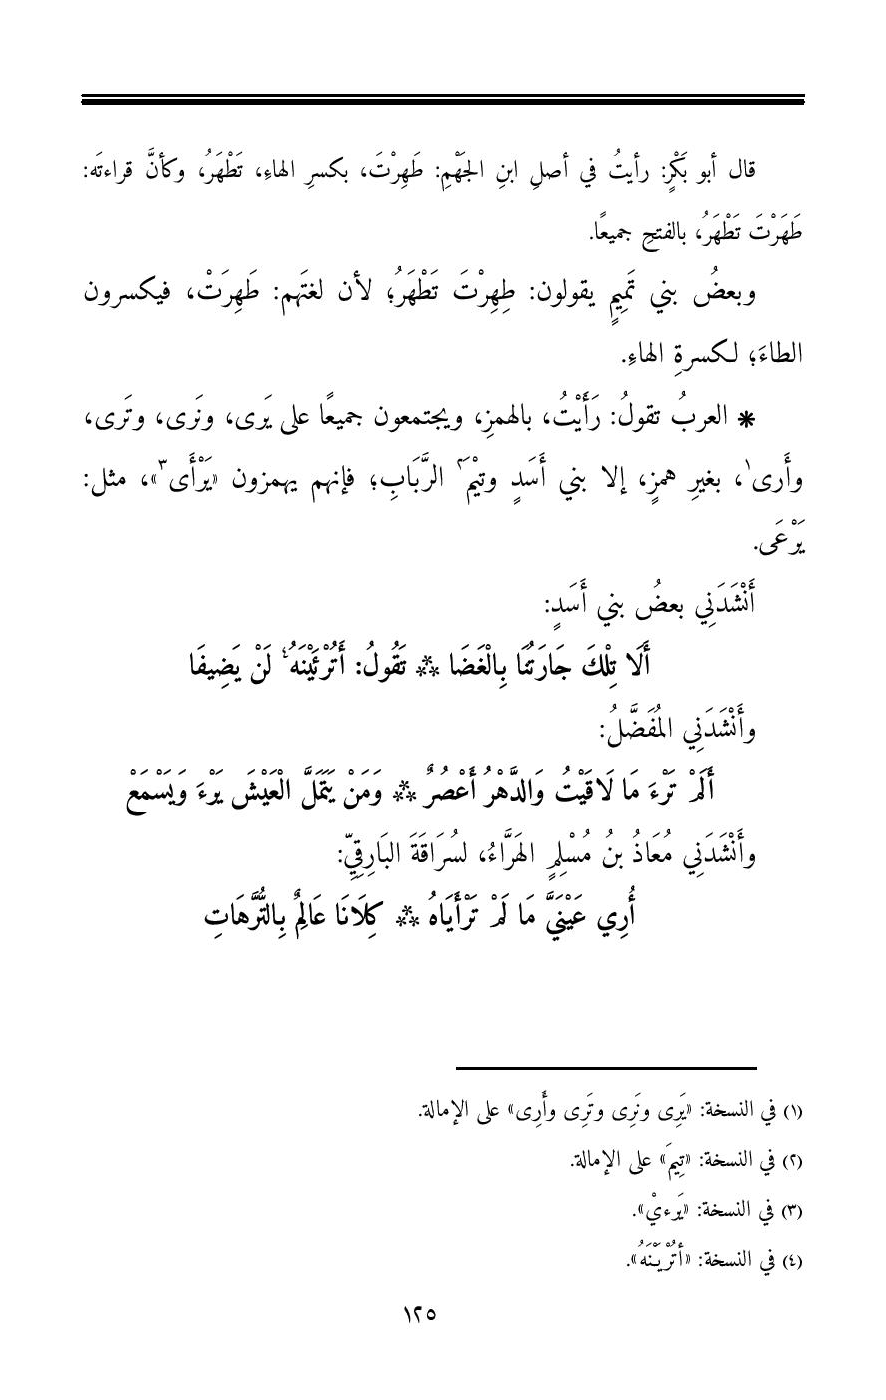 قال أبو بَكْرٍ: رأيتُ في أصلِ ابنِ الجَهْمِ: طَهِرْتَ، بكسرِ الهاءِ، تَطْهَرُ، وكأنَّ قراءتَه:
طَهَرْتَ تَطْهَرُ، بالفتحِ جميعًا.
وبعضُ بني تَمِيمٍ يقولون: طِهِرْتَ تَطْهَرُ؛ لأن لغتَهم: طَهِرَتْ، فيكسرون
الطاءَ؛ لكسرةِ الهاءِ.
* العربُ تقولُ: رَأَيْتُ، بالهمزِ، ويجتمعون جميعًا على يَرى، ونَرى، وتَرى،
وأَرى١، بغيرِ همزٍ، إلا بني أَسَدٍ وتيْمَ٢ الرَّبَابِ؛ فإنهم يهمزون «يَرْأَى٣»، مثل:
يَرْعَى.
أَنْشَدَنِي بعضُ بني أَسَدٍ:
أَلَا تِلْكَ جَارَتُنَا بِالْغَضَا ** تَقُولُ: أَتُرْئَيْنَهُ٤ لَنْ يَضِيفَا
وأَنْشَدَنِي المُفَضَّلُ:
أَلَمْ تَرْءَ مَا لَاقَيْتُ وَالدَّهْرُ أَعْصُرٌ ** وَمَنْ يَتَمَلَّ الْعَيْشَ يَرْءَ وَيَسْمَعْ
وأَنْشَدَنِي مُعَاذُ بنُ مُسْلِمٍ الهَرَّاءُ، لسُرَاقَةَ البَارِقِيِّ:
أُرِي عَيْنَيَّ مَا لَمْ تَرْأَيَاهُ ** كِلَانَا عَالِمٌ بِالتُّرَّهَاتِ
(١) في النسخة: «يَرِى ونَرِى وتَرِى وأَرِى» على الإمالة.
(٢) في النسخة: «تِيمَ» على الإمالة.
(٣) في النسخة: «يَرءيْ».
(٤) في النسخة: «أتُرْيَنْهُ».
١٢٥